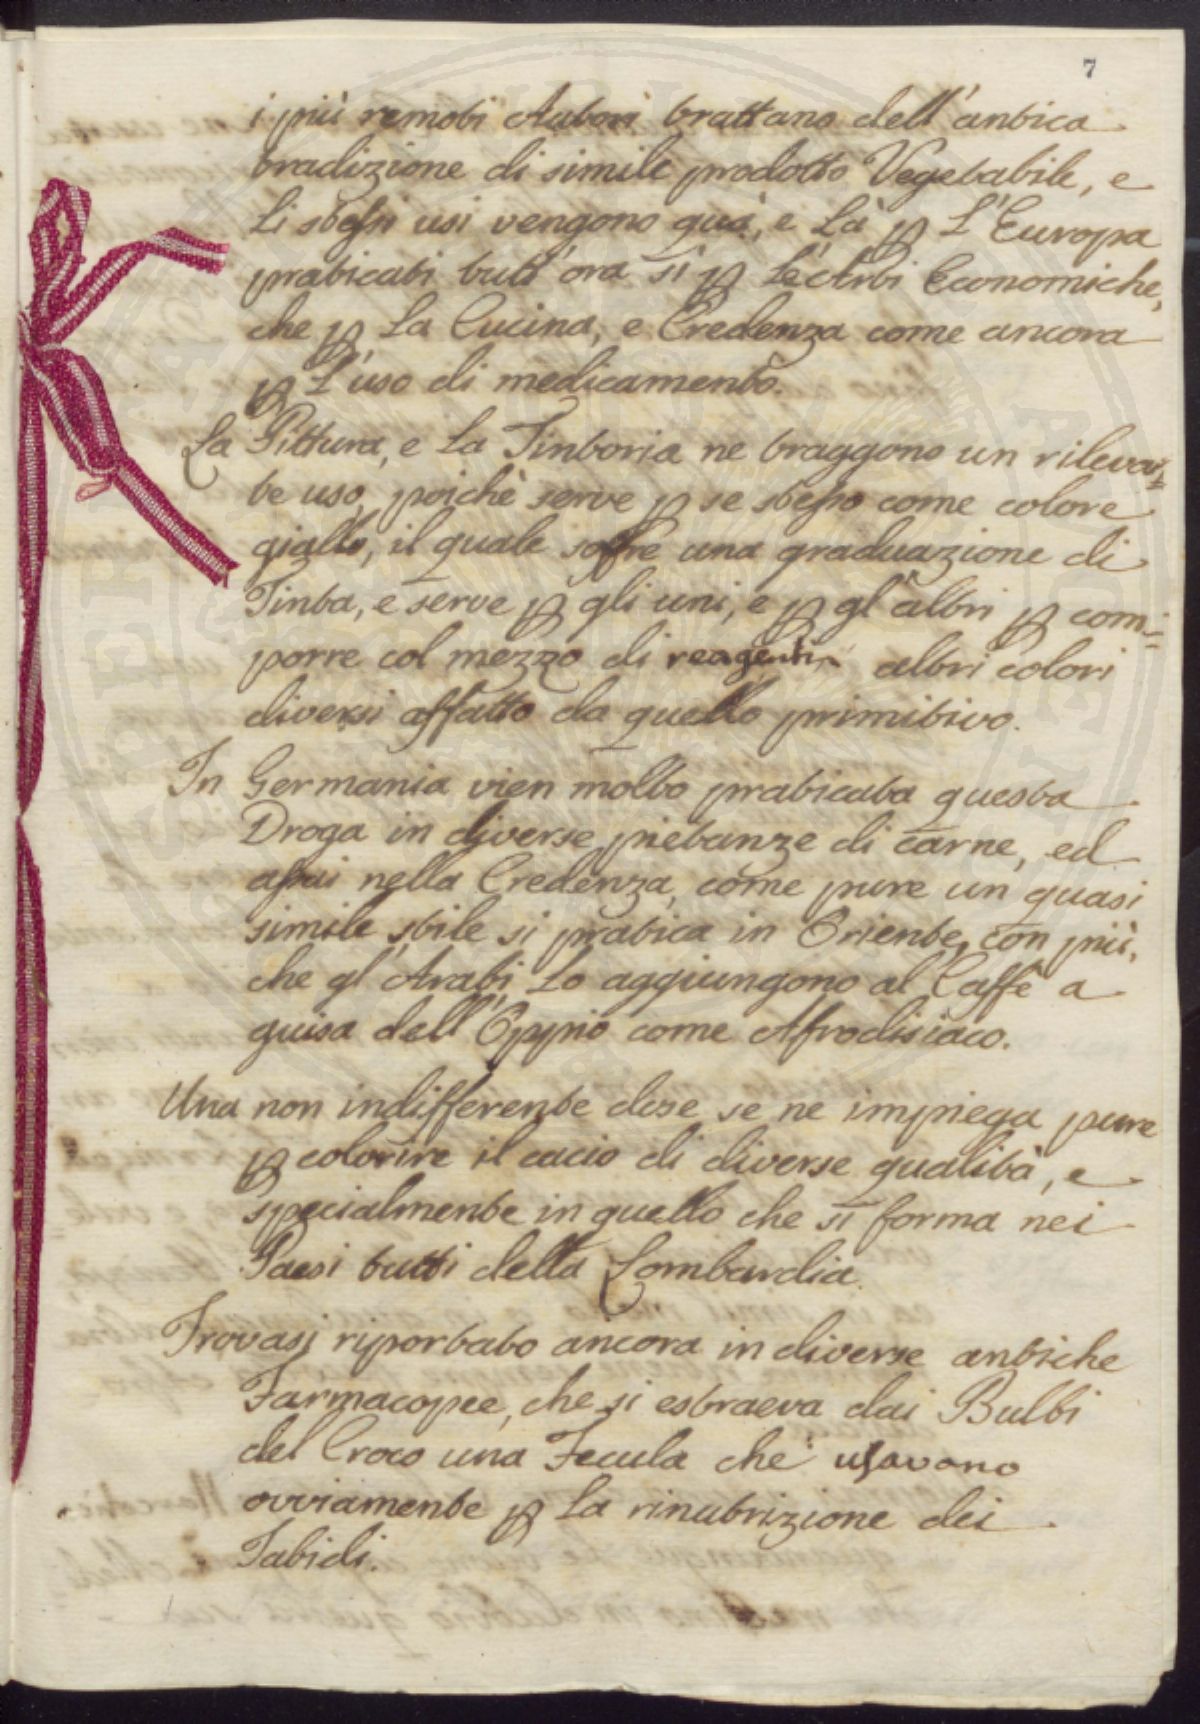 7
i più remoti Autori trattano dell'antica
tradizione di simile prodotto Vegetabile, e
li stessi usi vengono quà, e là ꝑ l'Europa
praticati tutt'ora sì ꝑ le Arti Economiche,
che ꝑ la Cucina, e Credenza come ancora
ꝑ l'uso di medicamento.
La Pittura, e la Tintoria ne traggono un rilevan=
te uso, poichè serve ꝑ se stesso come colore
giallo, il quale soffre una graduazione di
Tinta, e serve ꝑ gli uni, e ꝑ gl'altri ꝑ com=
porre col mezzo di reagenti altri colori
diversi affatto da quello primitivo.
In Germania vien molto praticata questa
Droga in diverse pietanze di carne, ed
assai nella Credenza, come pure un quasi
simile stile si pratica in Oriente, con più,
che gl'Arabi lo aggiungono al Caffè a
guisa dell'Oppio come Afrodisiaco.
Una non indifferente dose se ne impiega pure
ꝑ colorire il cacio di diverse qualità, e
specialmente in quello che si forma nei
Paesi tutti della Lombardia.
Trovasi riportato ancora in diverse antiche
Farmacopee, che si estraeva dai Bulbi
del Croco una Fecula che usavano
ovviamente ꝑ la rinutrizione dei
Tabidi.